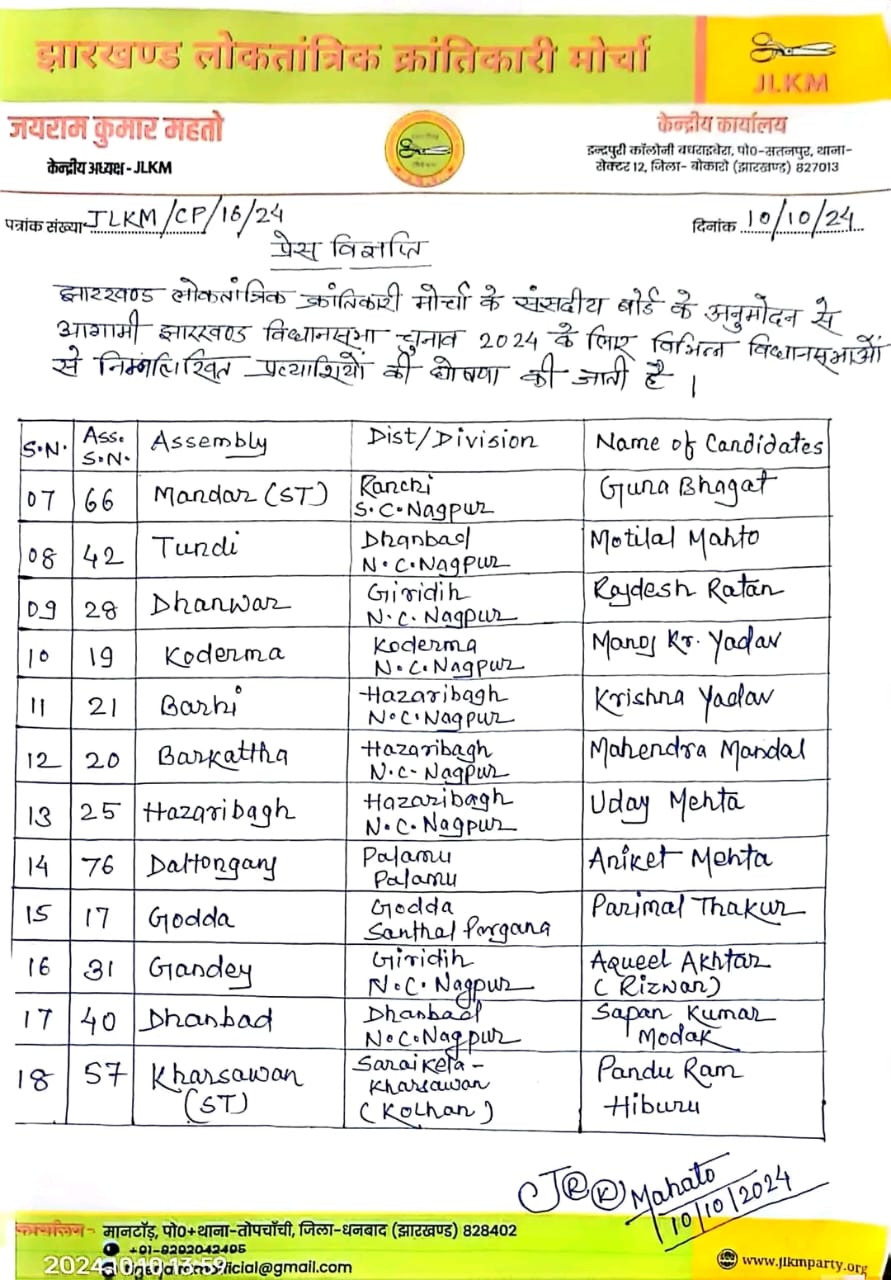 झारखण्ड लोकतांत्रिक क्रांतिकारी मोर्चा
JLKM
जयराम कुमार महतो
केन्द्रीय अध्यक्ष - JLKM
केन्द्रीय कार्यालय
इन्द्रपुरी कॉलोनी बधराइबेरा, पो0-सतनपुर, थाना-
सेक्टर 12, जिला- बोकारो (झारखण्ड) 827013
पत्रांक संख्या JLKM/CP/16/24
दिनांक 10/10/24
प्रेस विज्ञप्ति
झारखण्ड लोकतांत्रिक क्रांतिकारी मोर्चा के संसदीय बोर्ड के अनुमोदन से
आगामी झारखण्ड विधानसभा चुनाव 2024 के लिए विभिन्न विधानसभाओं
से निम्नलिखित प्रत्याशियों की घोषणा की जाती है ।
S.N. Ass. S.N. Assembly Dist/Division Name of Candidates
07 66 Mandar (ST) Ranchi S.C.Nagpur Guna Bhagat
08 42 Tundi Dhanbad N.C.Nagpur Motilal Mahto
09 28 Dhanwar Giridih N.C.Nagpur Rajdesh Ratan
10 19 Koderma Koderma N.C.Nagpur Manoj Kr. Yadav
11 21 Barhi Hazaribagh N.C.Nagpur Krishna Yadav
12 20 Barkattha Hazaribagh N.C-Nagpur Mahendra Mandal
13 25 Hazaribagh Hazaribagh N.C.Nagpur Uday Mehta
14 76 Daltonganj Palamu Palamu Aniket Mehta
15 17 Godda Godda Santhal Pargana Parimal Thakur
16 31 Gandey Giridih N.C.Nagpur Aqueel Akhtar (Rizwan)
17 40 Dhanbad Dhanbad N.C.Nagpur Sapan Kumar Modak
18 57 Kharsawan (ST) Saraikela-Kharsawan (Kolhan) Pandu Ram Hiburu
JRK Mahato
10/10/2024
कार्यालय - मानटाँड़, पो0+थाना-तोपचाँची, जिला-धनबाद (झारखण्ड) 828402
+91-9202042495
@gmail.com
www.jlkmparty.org